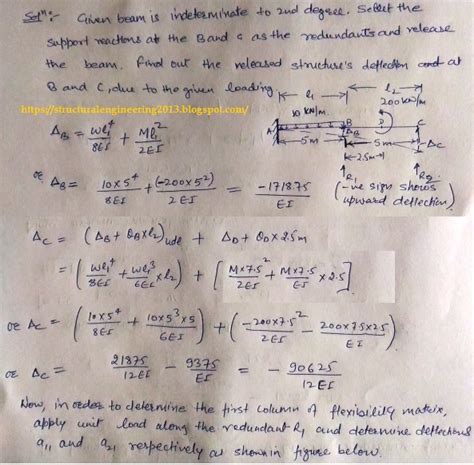 Solⁿ:- Given beam is indeterminate to 2nd degree. Select the
support reactions at the B and C as the redundants and release
the beam. Find out the released structure's deflection at
B and C, due to the given loading
l₁ l₂
200 kN/m
https://structuralengineering2013.blogspot.com/
10 kN/m D
A B C
ΔB = wl₁⁴/8EI + Ml₁²/2EI
5m ΔB 5m ΔC
2.5m
R₁ R₂
or ΔB = 10×5⁴/8EI + (-200×5²)/2EI = -1718.75/EI (-ve sign shows
upward deflection)
ΔC = (ΔB + θB×l₂)udl + ΔD + θD×2.5m
= (wl₁⁴/8EI + wl₁³/6EI ×l₂) + [M×7.5²/2EI + M×7.5/EI ×2.5]
or ΔC = (10×5⁴/8EI + 10×5³×5/6EI) + (-200×7.5²/2EI - 200×7.5×2.5/EI)
or ΔC = 21875/12EI - 9375/EI = - 90625/12EI
Now, in order to determine the first column of flexibility matrix,
apply unit load along the redundant R₁ and determine deflections
a₁₁ and a₂₁ respectively as shown in figure below.